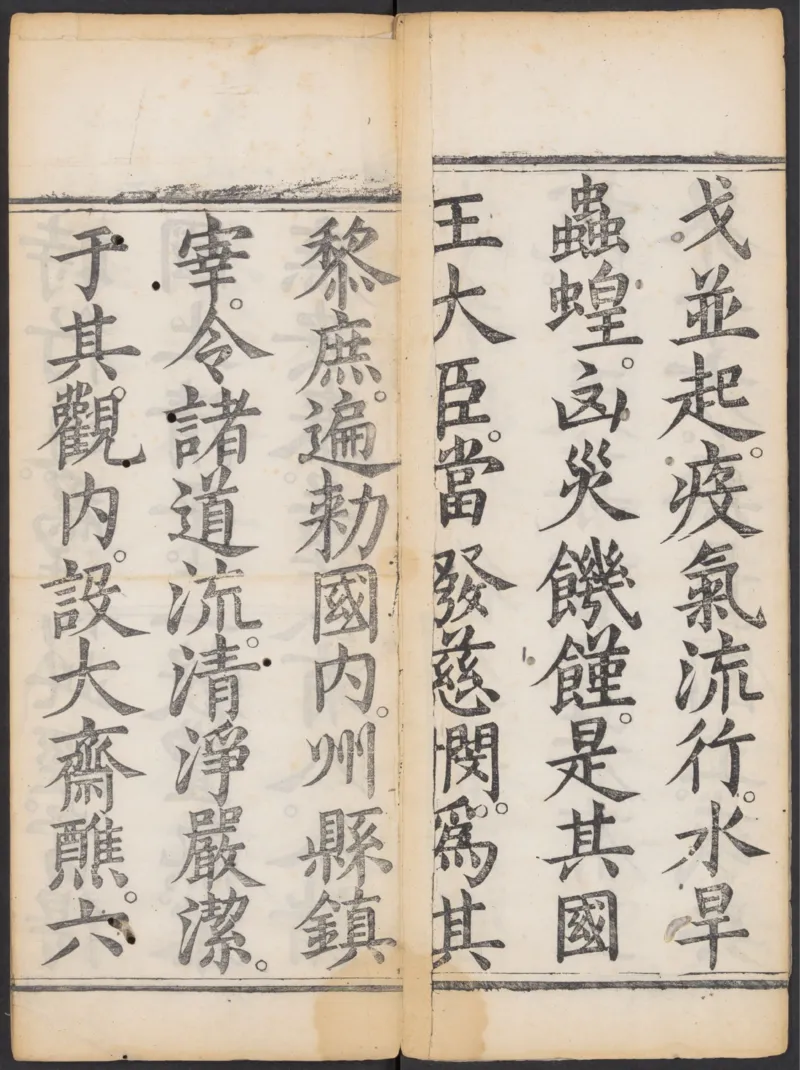 戈並起。疫氣流行。水旱
蟲蝗。凶災饑饉。是其國
王大臣。當發慈憫。爲其
黎庶。遍勑國内。州縣鎮
宰。令諸道流。清淨嚴潔。
于其觀内。設大齋醮。六